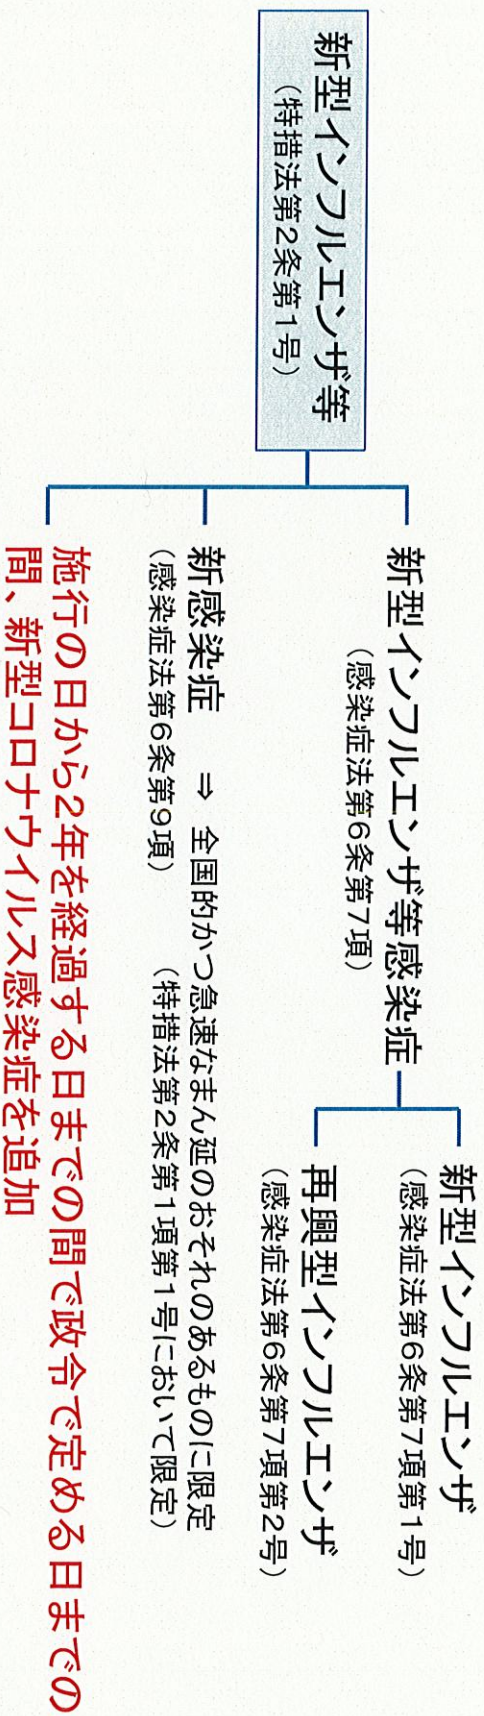 新型インフルエンザ等
（特措法第2条第1号）
新型インフルエンザ等感染症
（感染症法第6条第7項）
新型インフルエンザ
（感染症法第6条第7項第1号）
再興型インフルエンザ
（感染症法第6条第7項第2号）
新感染症 ⇒ 全国的かつ急速なまん延のおそれのあるものに限定
（感染症法第6条第9項） （特措法第2条第1項第1号において限定）
施行の日から2年を経過する日までの間で政令で定める日までの
間、新型コロナウイルス感染症を追加